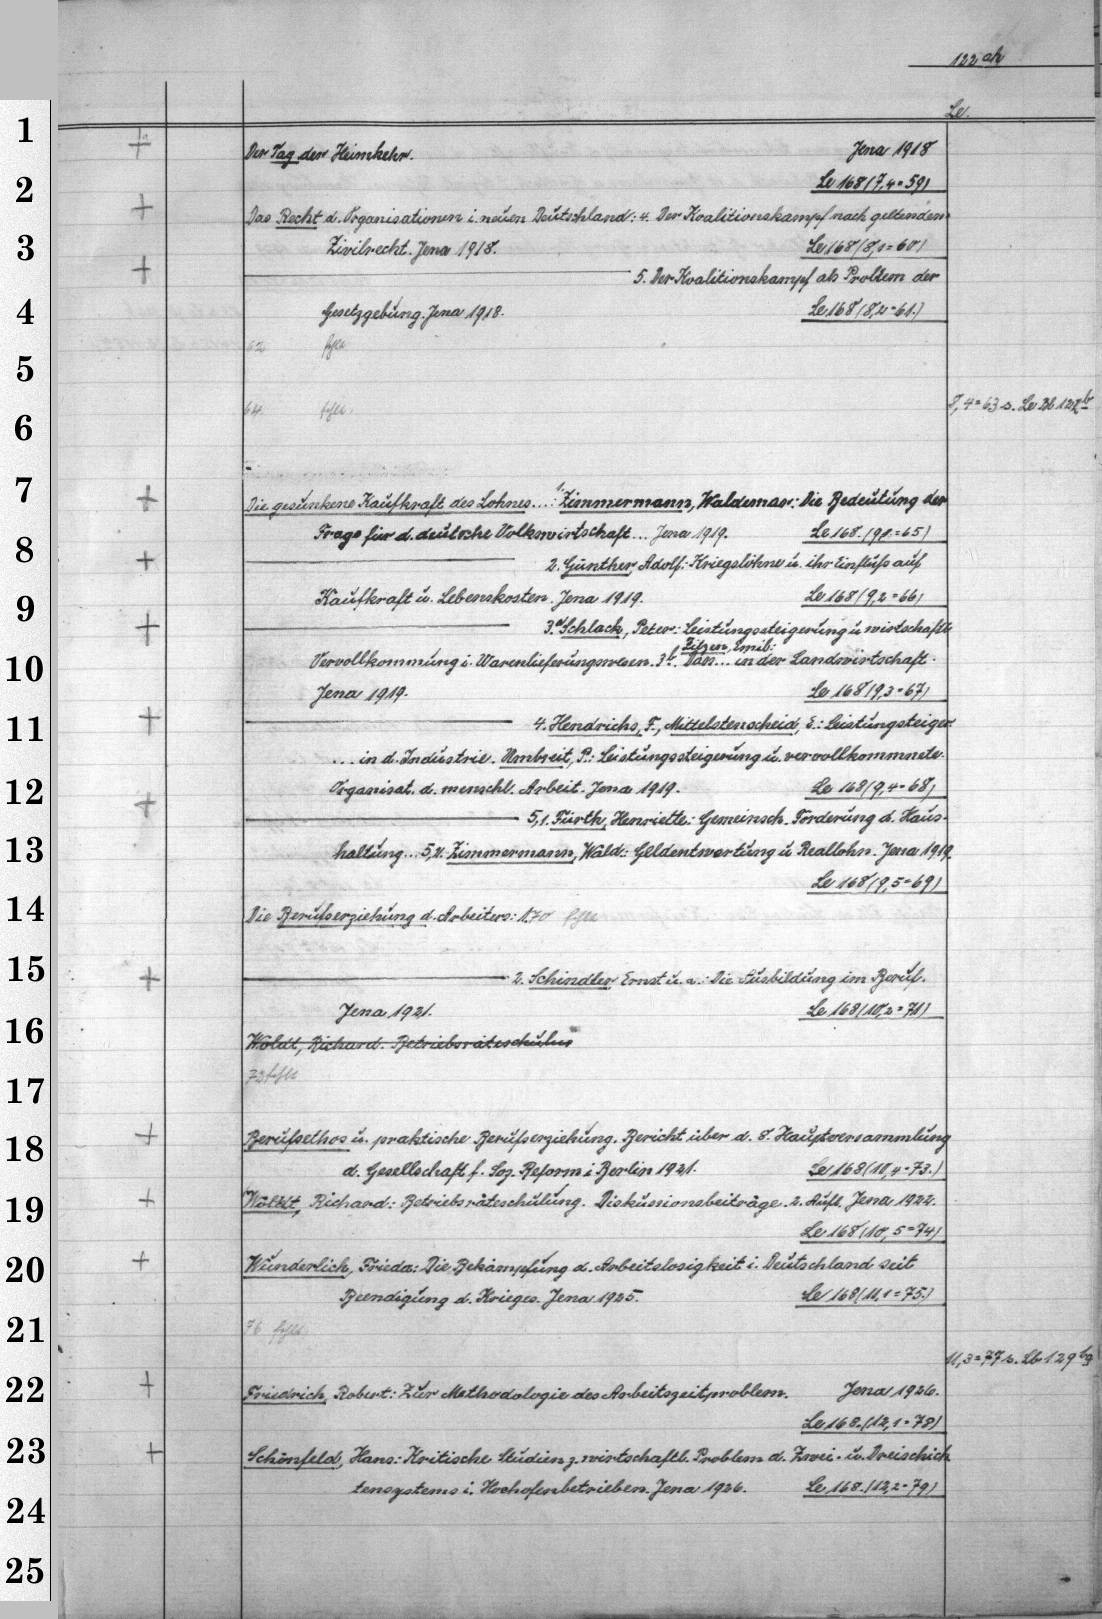 122 ah
Le.
1
Der Tag der Heimkehr. Jena 1918
2
Le 168 (7,4=59)
Das Recht d. Organisationen i. neuen Deutschland: 4. Der Koalitionskampf nach geltendem
3
Zivilrecht. Jena 1918. Le 168 (8,1=60)
5. Der Koalitionskampf als Problem der
4
Gesetzgebung. Jena 1918. Le 168 (8,2=61.)
62 fehlt
5
64. fehlt. 8,4=63 s. Le Bb 127 b
6
7
Die gesunkene Kaufkraft des Lohnes....: 1. Zimmermann, Waldemar: Die Bedeutung der
Frage für d. deutsche Volkswirtschaft... Jena 1919. Le 168. (9,1=65)
8
2. Günther, Adolf: Kriegslöhne u. ihr Einfluß auf
9
Kaufkraft u. Lebenskosten. Jena 1919. Le 168 (9,2=66)
3.a Schlack, Peter: Leistungssteigerung u wirtschaftl.
Zitzen, Emil:
10
Vervollkommung i. Warenlieferungswesen. 3b. Das... in der Landwirtschaft.
Jena 1919. Le 168 (9,3=67)
11
4. Hendrichs, F., Mittelstenscheid, E.: Leistungsteiger
... in d. Industrie. Umbreit, P.: Leistungssteigerung u. vervollkommnete
12
Organisat. d. menschl. Arbeit. Jena 1919. Le 168 (9,4=68)
5,1. Fürth, Henriette: Gemeinsch. Förderung d. Haus-
13
haltung... 5,2. Zimmermann, Wald.: Geldentwertung u Reallohn. Jena 1919.
Le 168 (9,5=69)
14
Die Berufserziehung d. Arbeiters: 1.70 fehlt
15
2. Schindler, Ernst u. a.: Die Ausbildung im Beruf.
Jena 1921. Le 168 (10,2=71)
16
Woldt, Richard. Betriebsräteschulun
73 fehlt
17
18
Berufsethos u. praktische Berufserziehung. Bericht über d. 8. Hauptversammlung
d. Gesellschaft f. Soz. Reform i Berlin 1921. Le 168 (10,4=73.)
19
Woldt, Richard: Betriebsräteschulung. Diskussionsbeiträge. 2. Aufl. Jena 1922.
Le 168 (10,5=74)
20
Wunderlich, Frieda: Die Bekämpfung d. Arbeitslosigkeit i. Deutschland seit
Beendigung d. Krieges. Jena 1925. Le 168 (11,1=75.)
21
76 fehlt
11,3=77 s. Lb 129
22
Friedrich, Robert: Zur Methodologie des Arbeitszeitproblem. Jena 1926.
Le 168. (12,1=78)
23
Schönfeld, Hans: Kritische Studien z. wirtschaftl. Problem d. Zwei- u. Dreischich
tensystems i. Hochofenbetrieben. Jena 1926. Le 168. (12,2=79)
24
25